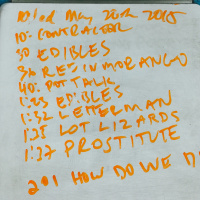 May 20th 2015
10: CONTRACTER
30 EDIBLES
36 REZ IN MORANGO
40: POT TALK
1:25 EDIBLES
1:32 LETTERMAN
1:35 LOT LIZARDS
1:37 PROSTITUTE
201 HOW DO WE